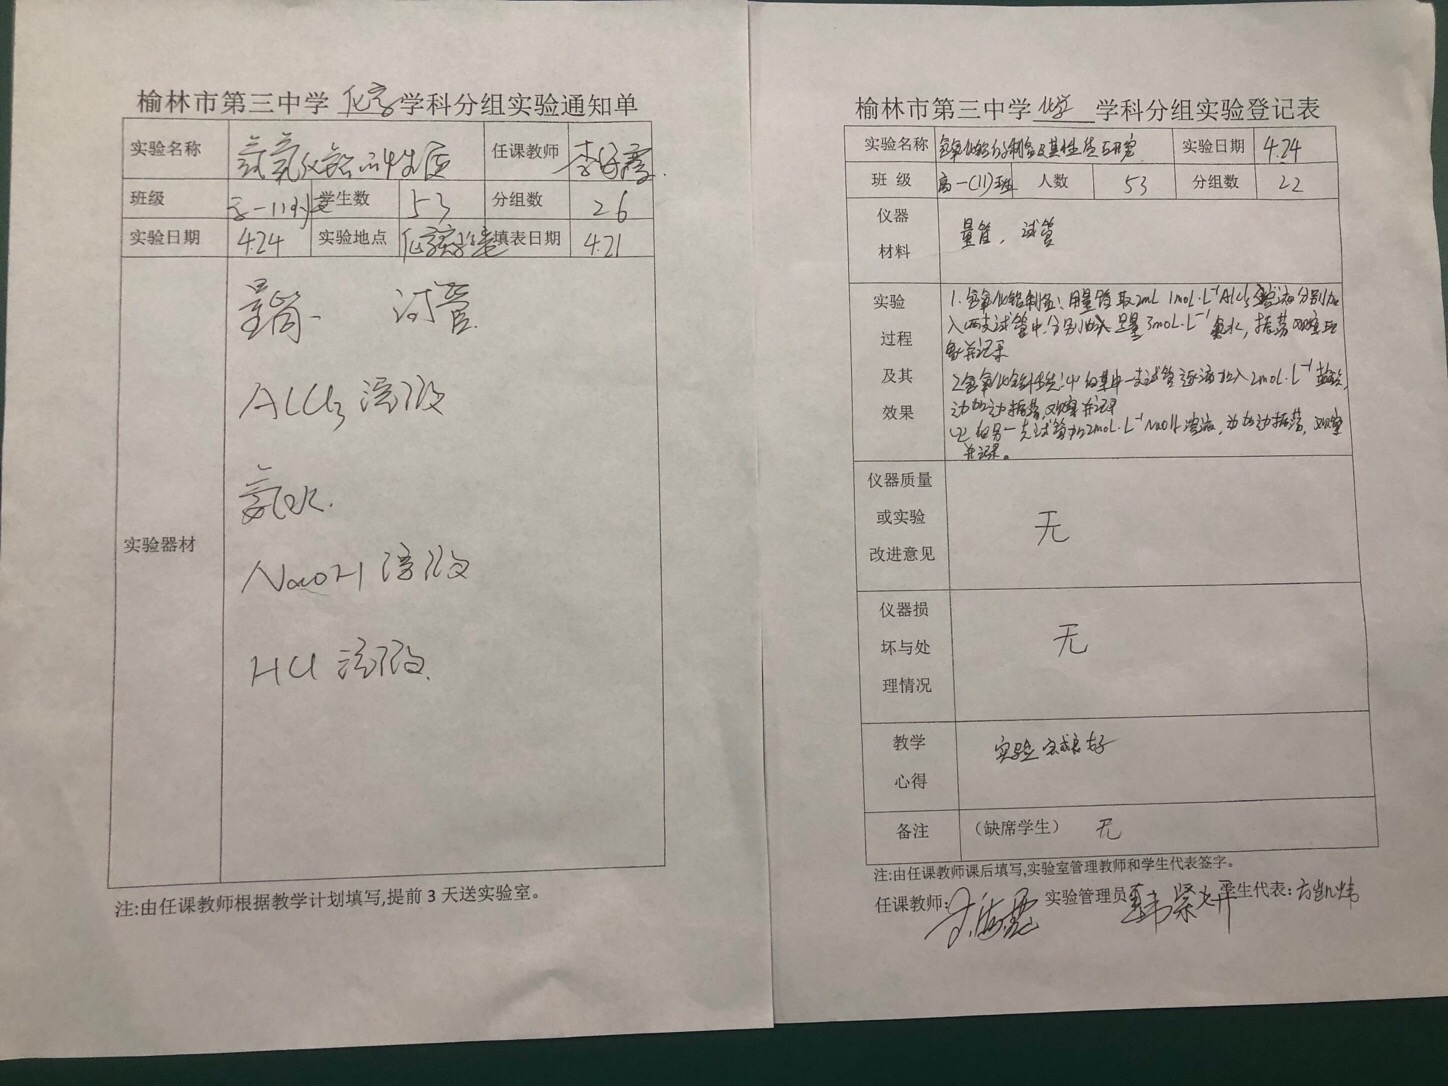 榆林市第三中学 化学 学科分组实验通知单
实验名称 氢氧化铝的性质 任课教师
班级 高一11班 学生数 53 分组数 26
实验日期 4.24 实验地点 化学实验室 填表日期 4.21
实验器材
量筒 试管
AlCl3 溶液
氨水
NaOH 溶液
HCl 溶液
注:由任课教师根据教学计划填写,提前 3 天送实验室。
榆林市第三中学 化学 学科分组实验登记表
实验名称 氢氧化铝的制备及其性质与研究 实验日期 4.24
班 级 高一(11)班 人数 53 分组数 22
仪器
材料
量筒、试管
实验
过程
及其
效果
1.氢氧化铝制备:用量筒取2mL 1mol·L⁻¹ AlCl3 溶液分别加
入两支试管中,分别加入足量3mol·L⁻¹ 氨水,振荡观察现
象并记录
中的其中一支试管逐滴加入2mol·L⁻¹ 盐酸,
边加边振荡,观察并记录
另一支试管加2mol·L⁻¹ NaOH 溶液,边加边振荡,观察
并记录。
仪器质量
或实验
改进意见
无
仪器损
坏与处
理情况
无
教学
心得
实验完成良好
备注 (缺席学生) 无
注:由任课教师课后填写,实验室管理教师和学生代表签字。
任课教师: 实验管理员 学生代表: